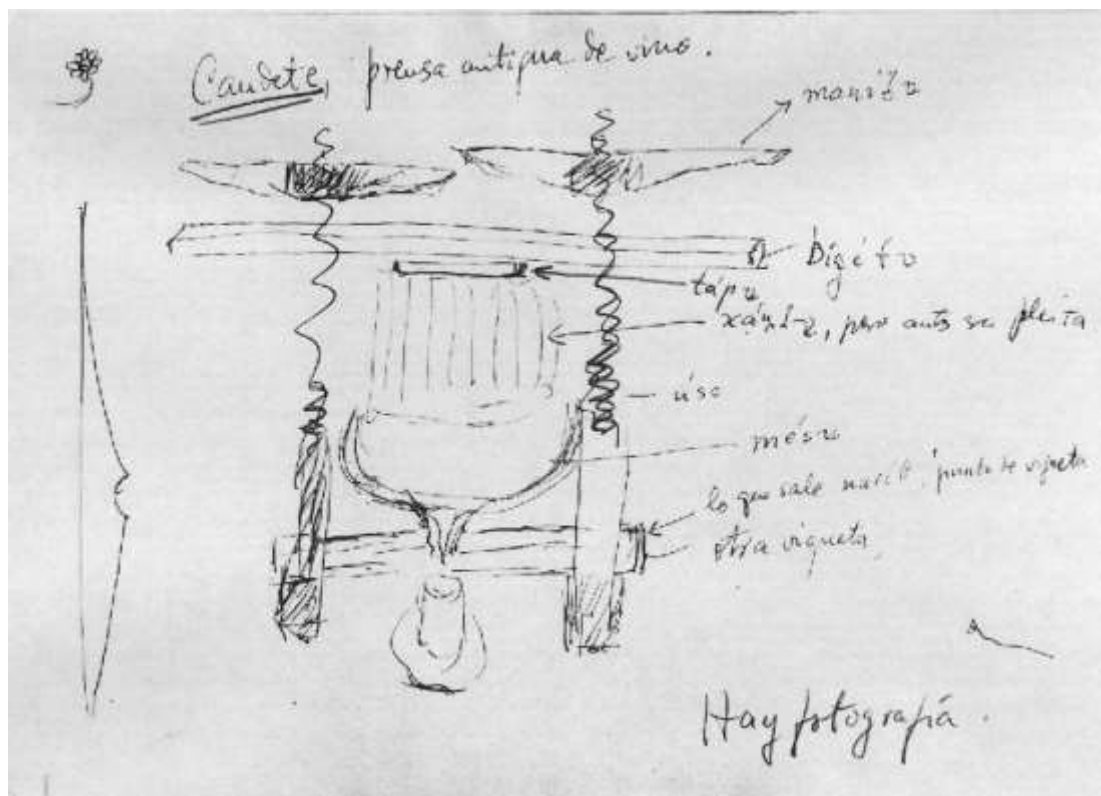 Caudete, prensa antigua de vino.
manita
tápa
pero antes se pleita
úso
mésa
lo que sale punta de vigueta
otra vigueta
Hay fotografía.